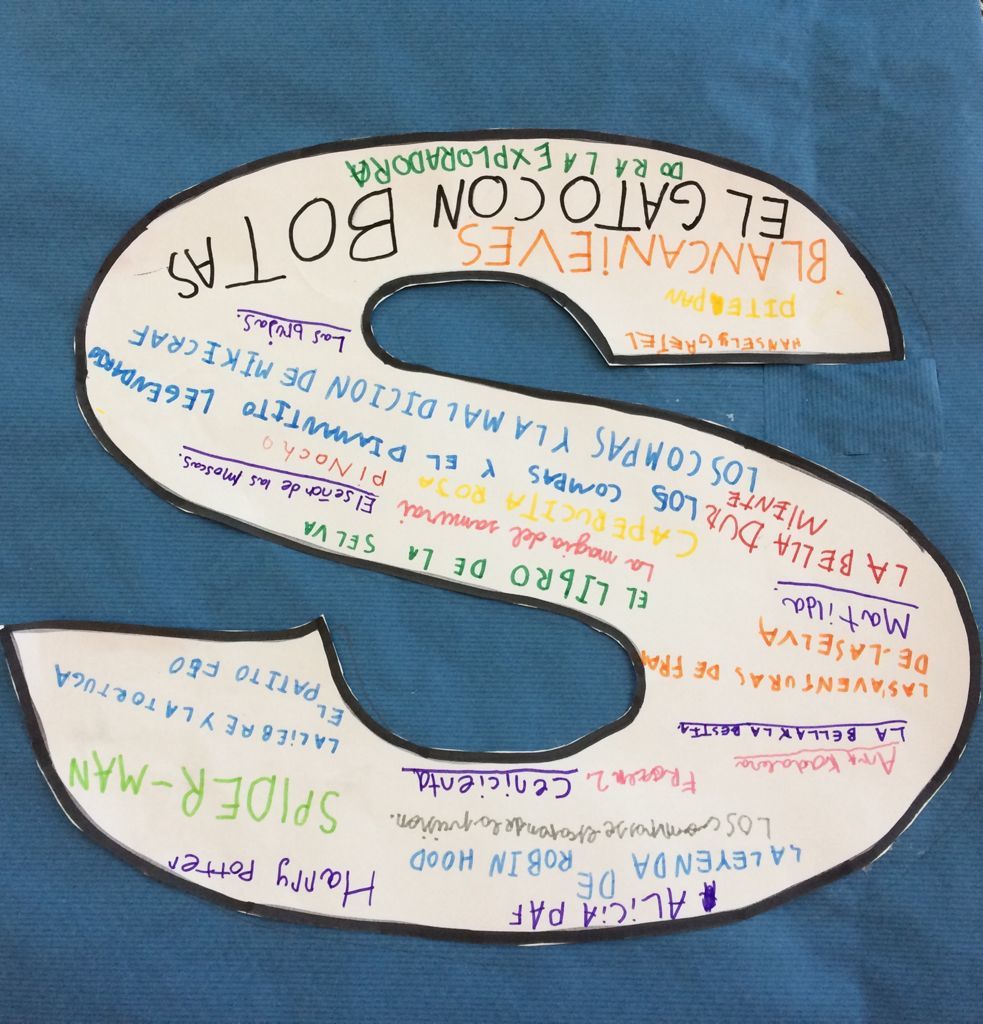 ALiCiA PAF
Harry Potter
LA LEYENDA DE ROBIN HOOD
LOS compas se escapan de la prision.
SPIDER-MAN
Cenicienta
Frozen 2.
Ana Kadabra
LA BELLA Y LA BESTIA
LA LiEBRE Y LA TORTUGA
EL PATITO FEO
LAS AVENTURAS DE FRAN
DE LA SELVA
Matilda
LA BELLA DUR
MIENTE
EL LIBRO DE LA SELVA
La magia del samurai
CAPERUCITA ROJA
El señor de las moscas.
PiNocho
LOS COMPAS Y EL DIAMANTITO LEGENDARIO
LOS COMPAS Y LA MALDICION DE MIKECRAF
Las brujas.
HANSEL y GRETEL
PITE PAN
BLANCANiEVES
EL GATO CON BOTAS
DORA LA EXPLORADORA